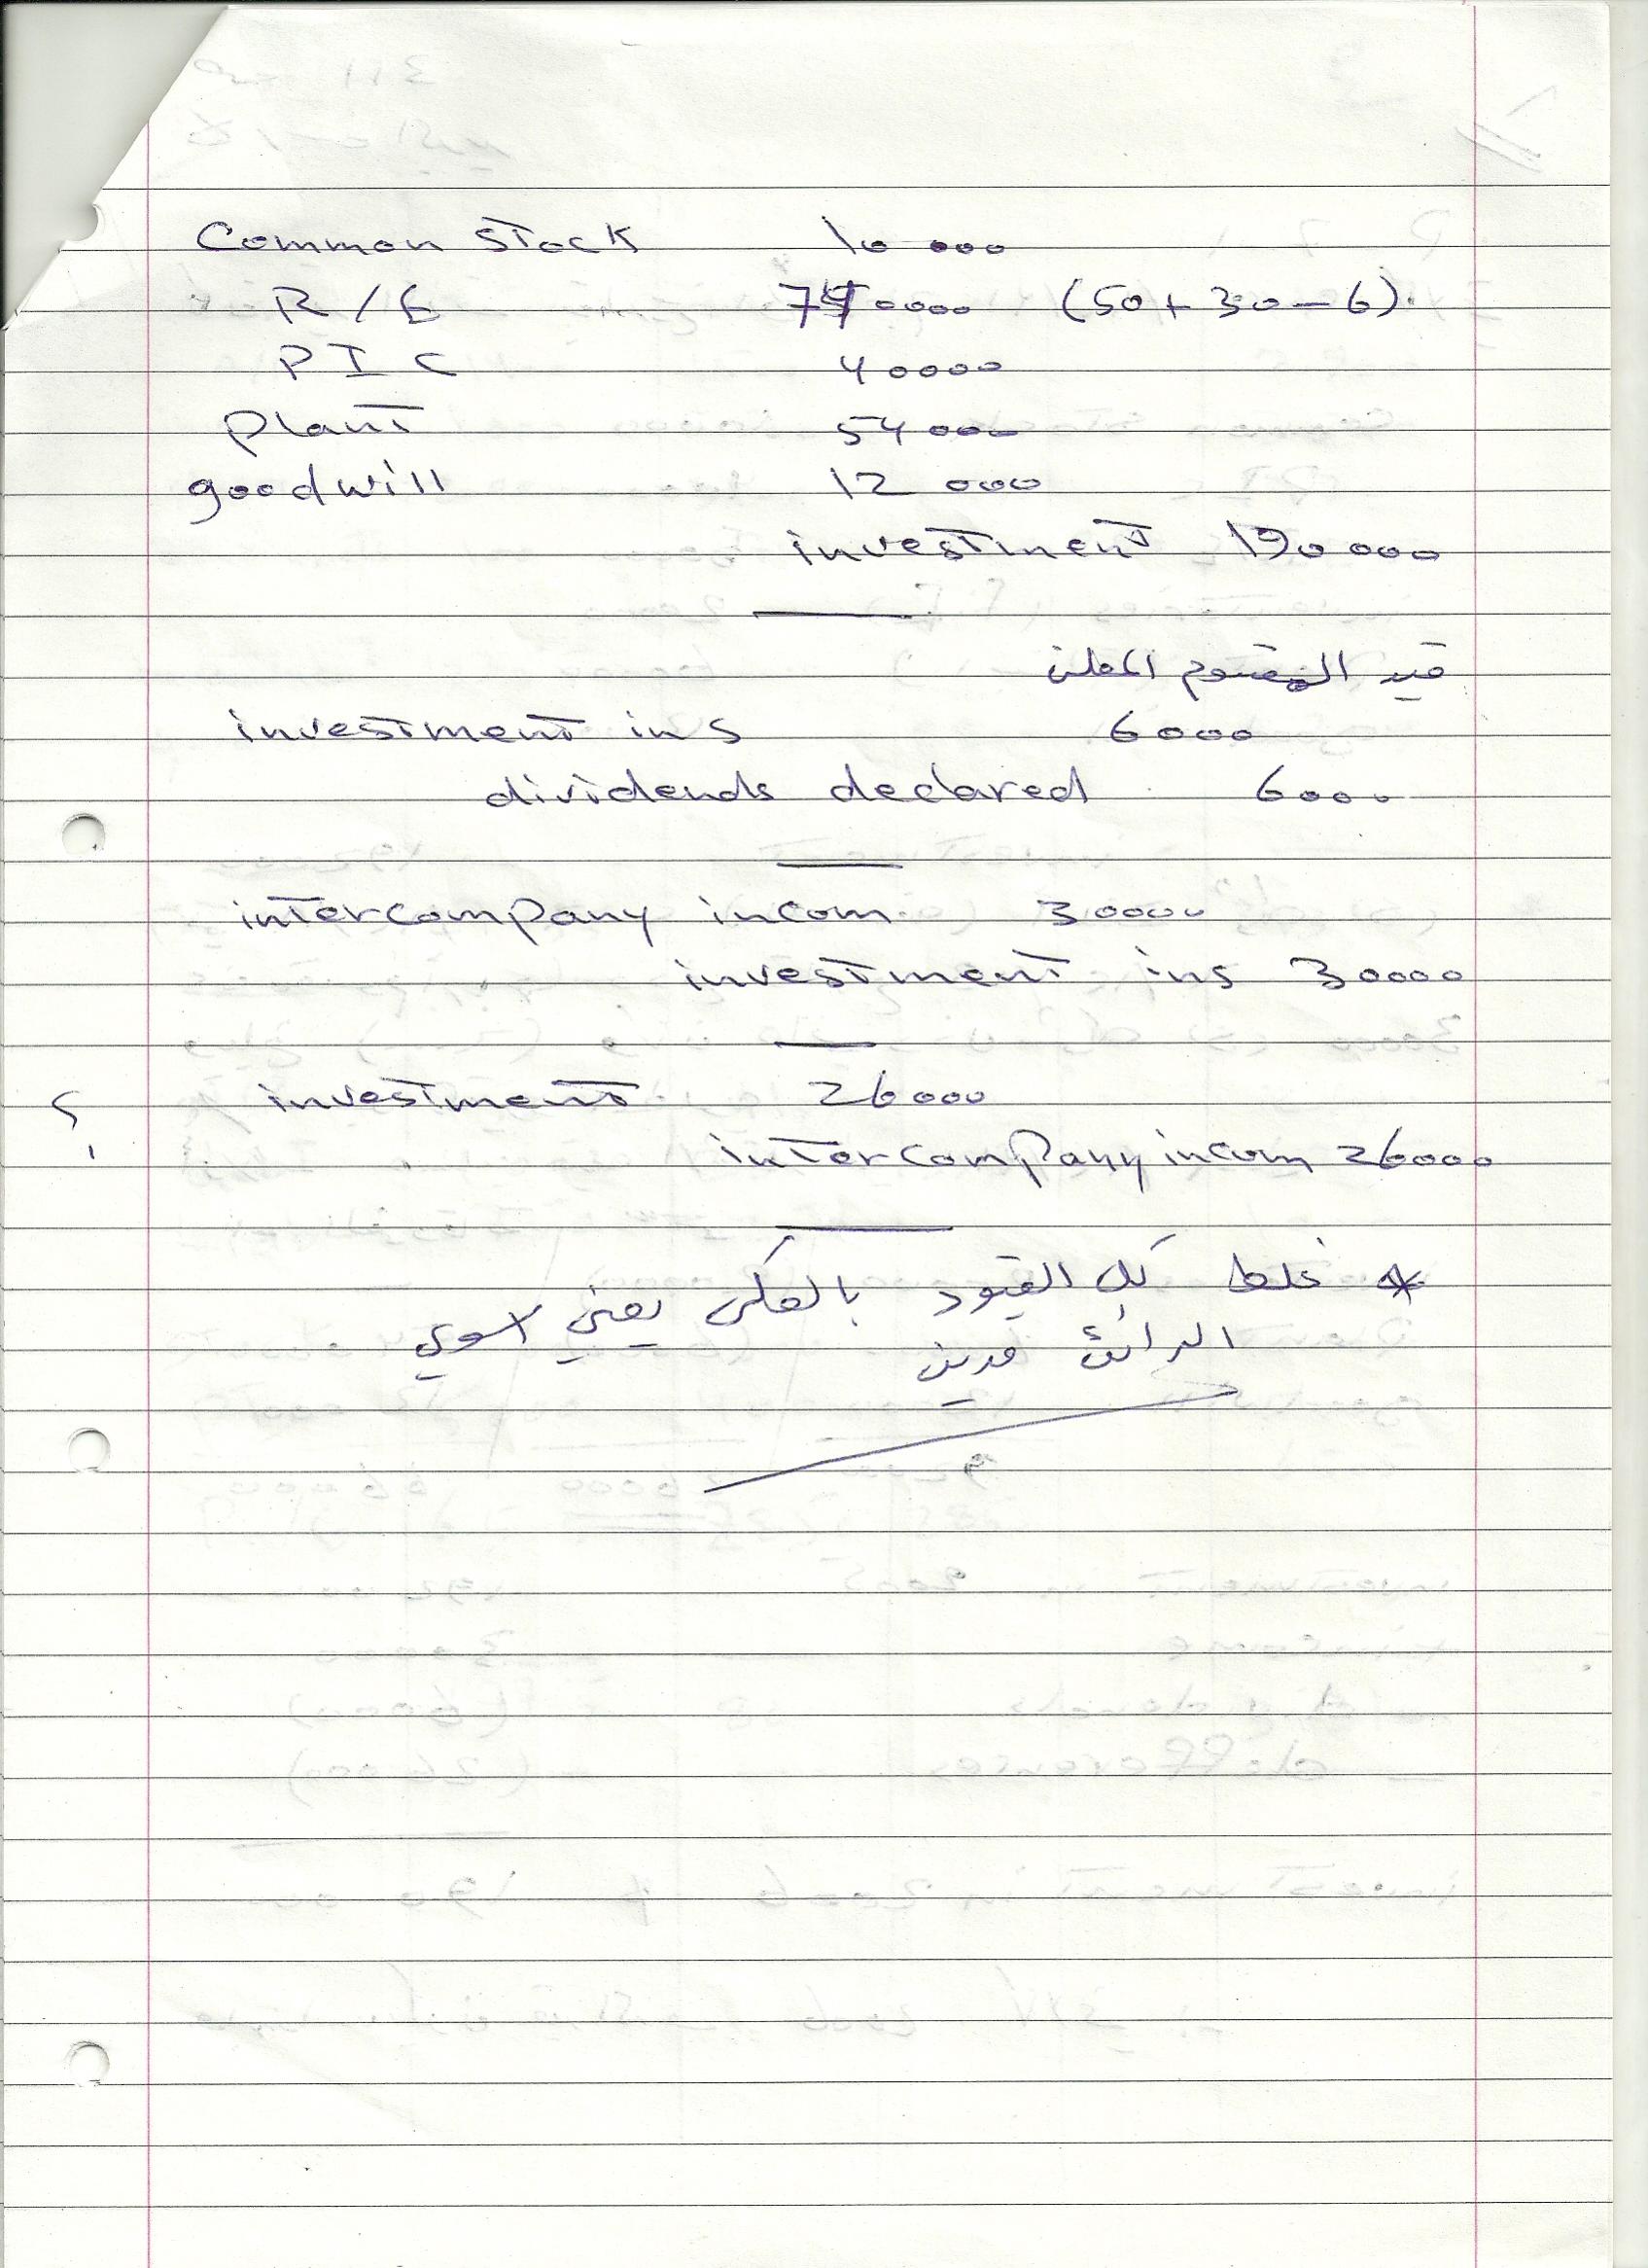 Common stock 10 000
R/E 740000 (50+30-6).
PIC 40000
plant 54000
goodwill 12 000
investment 190000
قيد المقسوم المعلن
investment in s 6000
dividends declared 6000
intercompany incom. 30000
investment in s 30000
؟ investment 26000
intercompany incom 26000
* غلط كل القيود بالعكس يعني اسوي
الدائن مدين